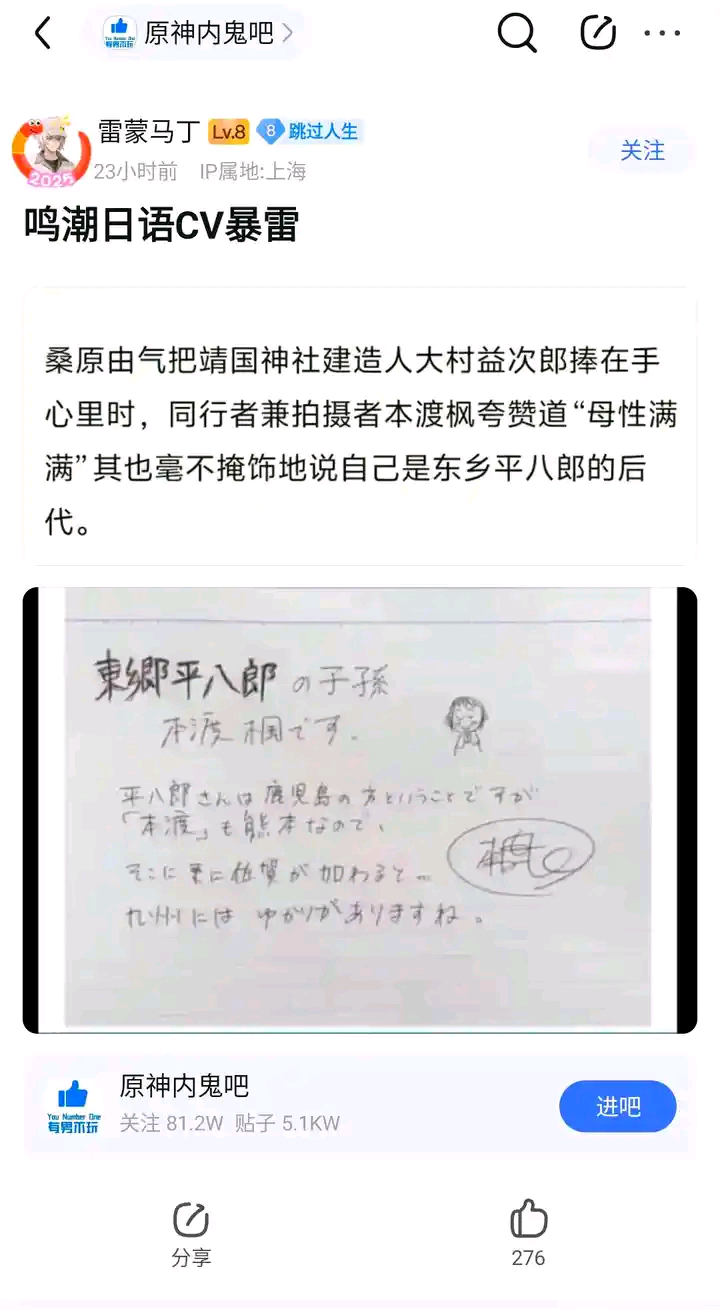 原神内鬼吧
雷蒙马丁 Lv.8 8 跳过人生
23小时前 IP属地:上海
关注
2025
鸣潮日语CV暴雷
桑原由气把靖国神社建造人大村益次郎捧在手
心里时，同行者兼拍摄者本渡枫夸赞道“母性满
满”其也毫不掩饰地说自己是东乡平八郎的后
代。
東郷平八郎の子孫
本渡楓です.
平八郎さんは鹿児島の方ということですが
「本渡」も熊本なので、
そこに更に佐賀が加わると…
九州にはゆかりがありますね。
原神内鬼吧
You Number One
有男不玩
关注 81.2W 贴子 5.1KW
进吧
分享
276